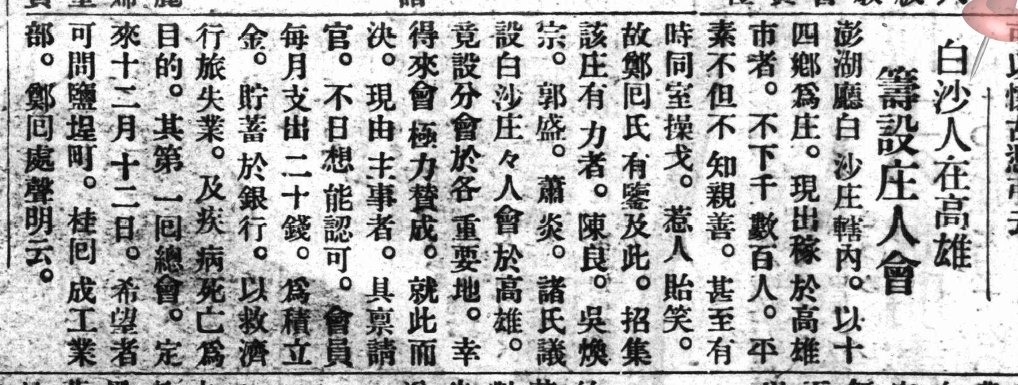 白沙人在高雄
籌設庄人會
澎湖廳白沙庄轄內。以十
四鄉爲庄。現出稼於高雄
市者。不下千數百人。平
素不但不知親善。甚至有
時同室操戈。惹人貽笑。
故鄭囘氏有鑒及此。招集
該庄有力者。陳良。吳煥
宗。郭盛。蕭炎。諸氏議
設白沙庄々人會於高雄。
竟設分會於各重要地。幸
得來會極力賛成。就此而
決。現由主事者。具禀請
官。不日想能認可。會員
每月支出二十錢。爲積立
金。貯蓄於銀行。以救濟
行旅失業。及疾病死亡爲
目的。其第一囘總會。定
來十二月十二日。希望者
可問鹽埕町。桂囘成工業
部。鄭囘處聲明云。